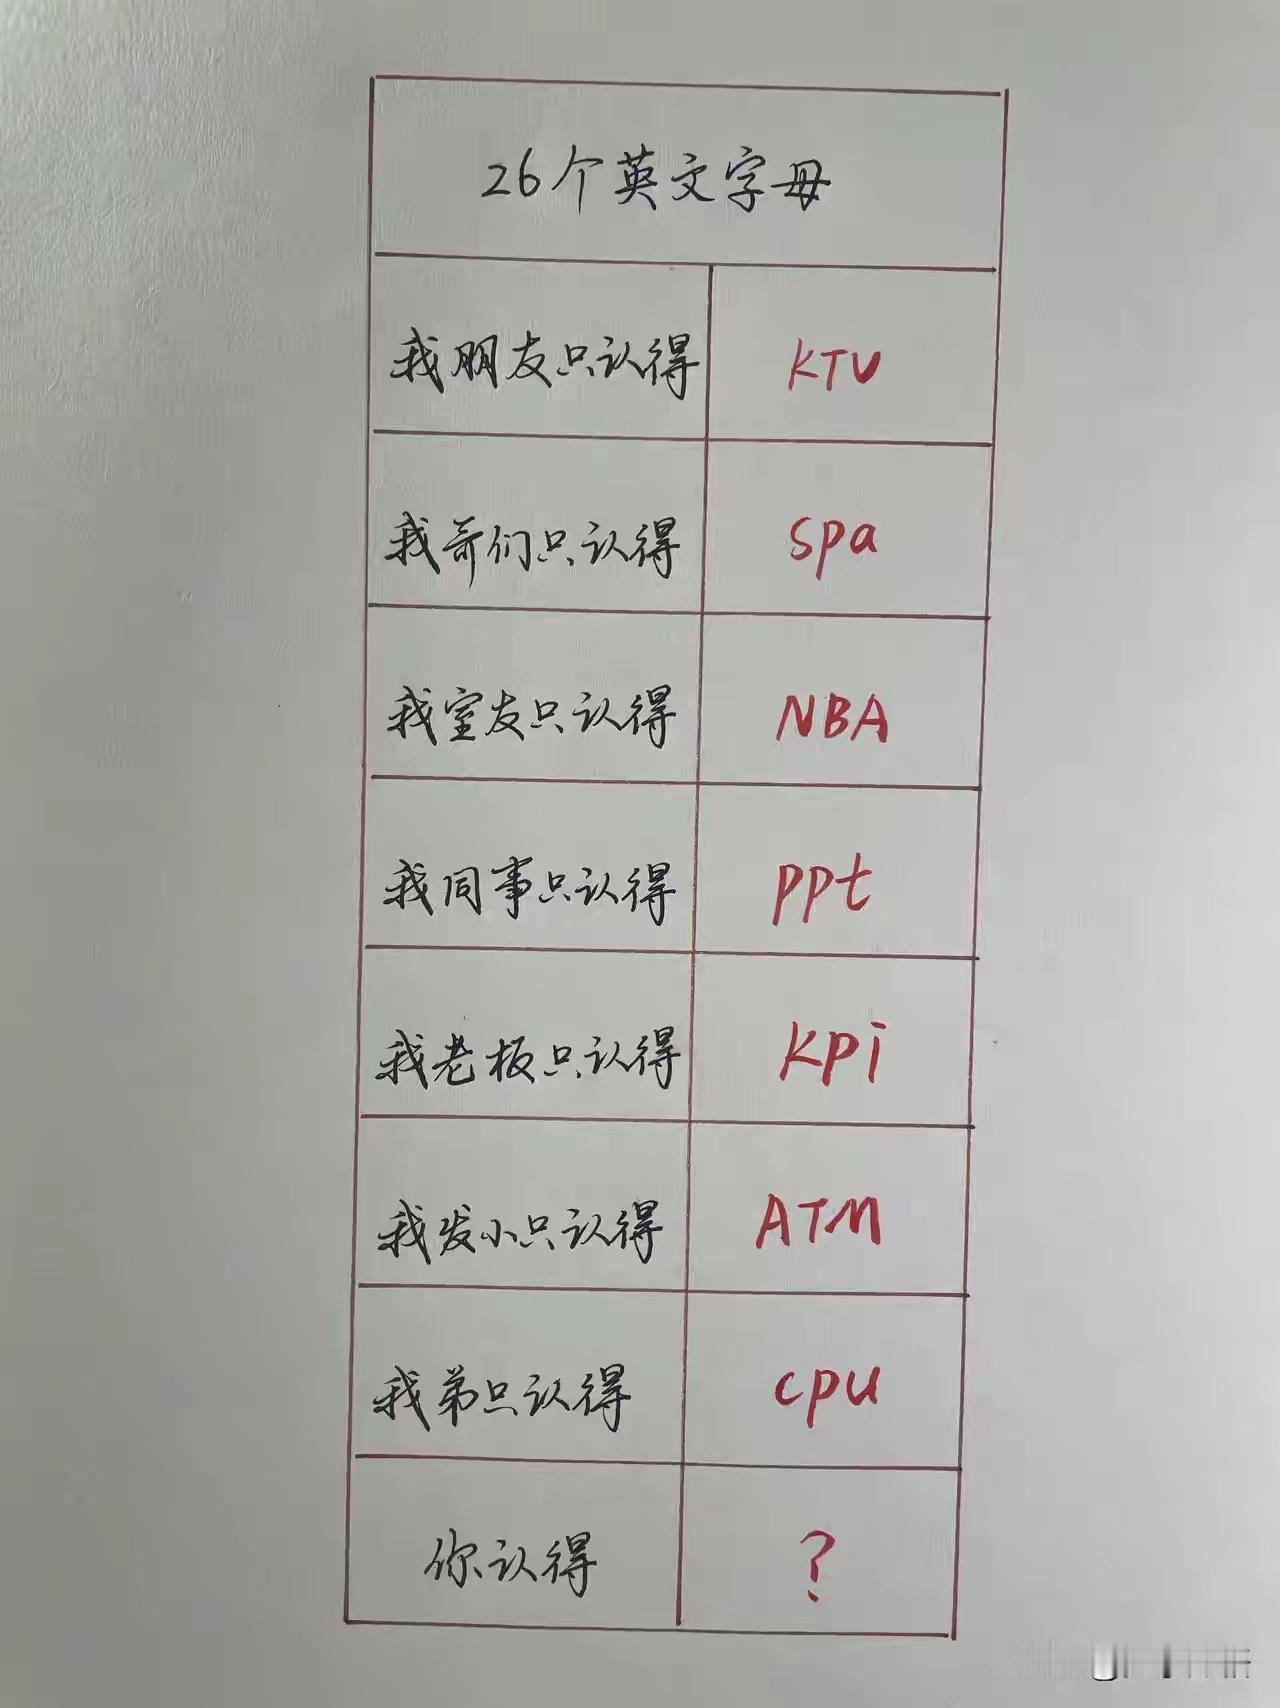 26个英文字母
我朋友只认得 KTV
我哥们只认得 spa
我室友只认得 NBA
我同事只认得 ppt
我老板只认得 KPi
我发小只认得 ATM
我弟只认得 cpu
你认得 ?